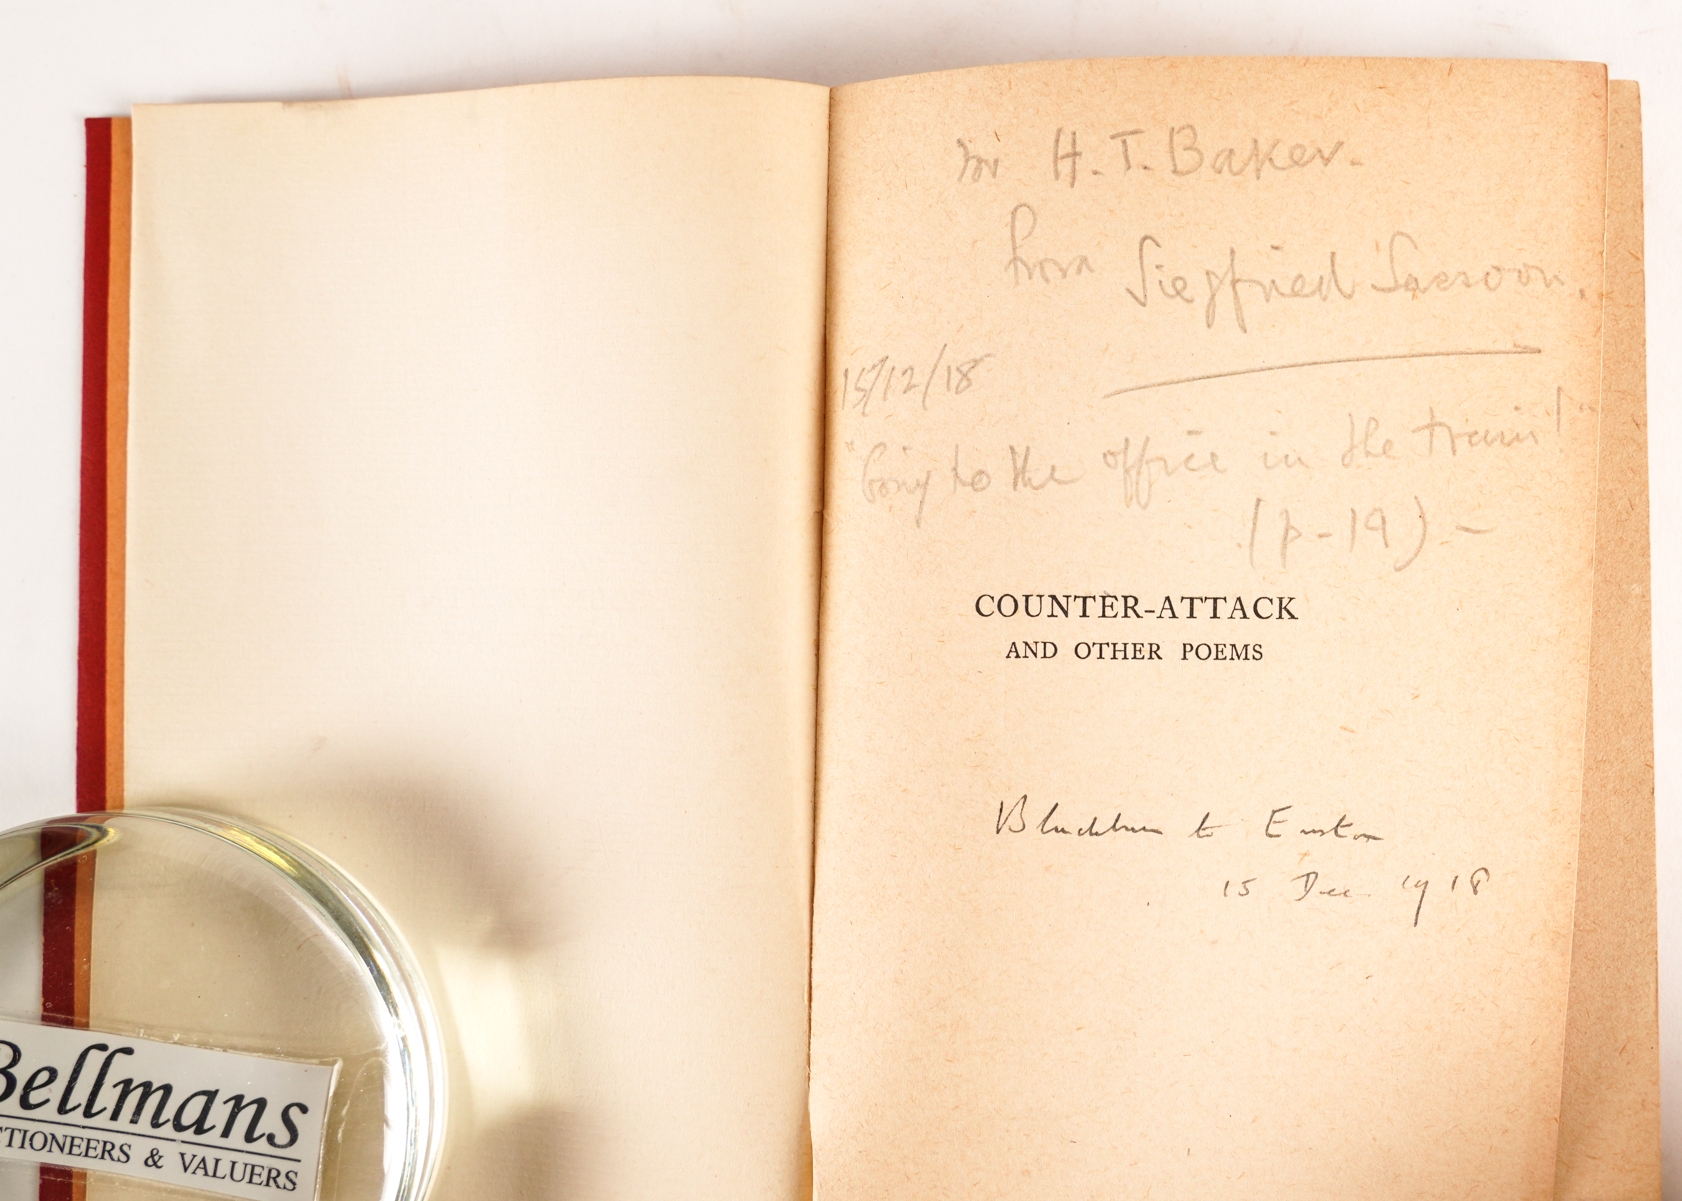 for H. T. Baker.
from Siegfried Sassoon.
15/12/18
"Going to the office in the train!"
(p-19) -
COUNTER-ATTACK
AND OTHER POEMS
Blackburn to Euston
15 Dec. 1918
Bellmans
CTIONEERS & VALUERS